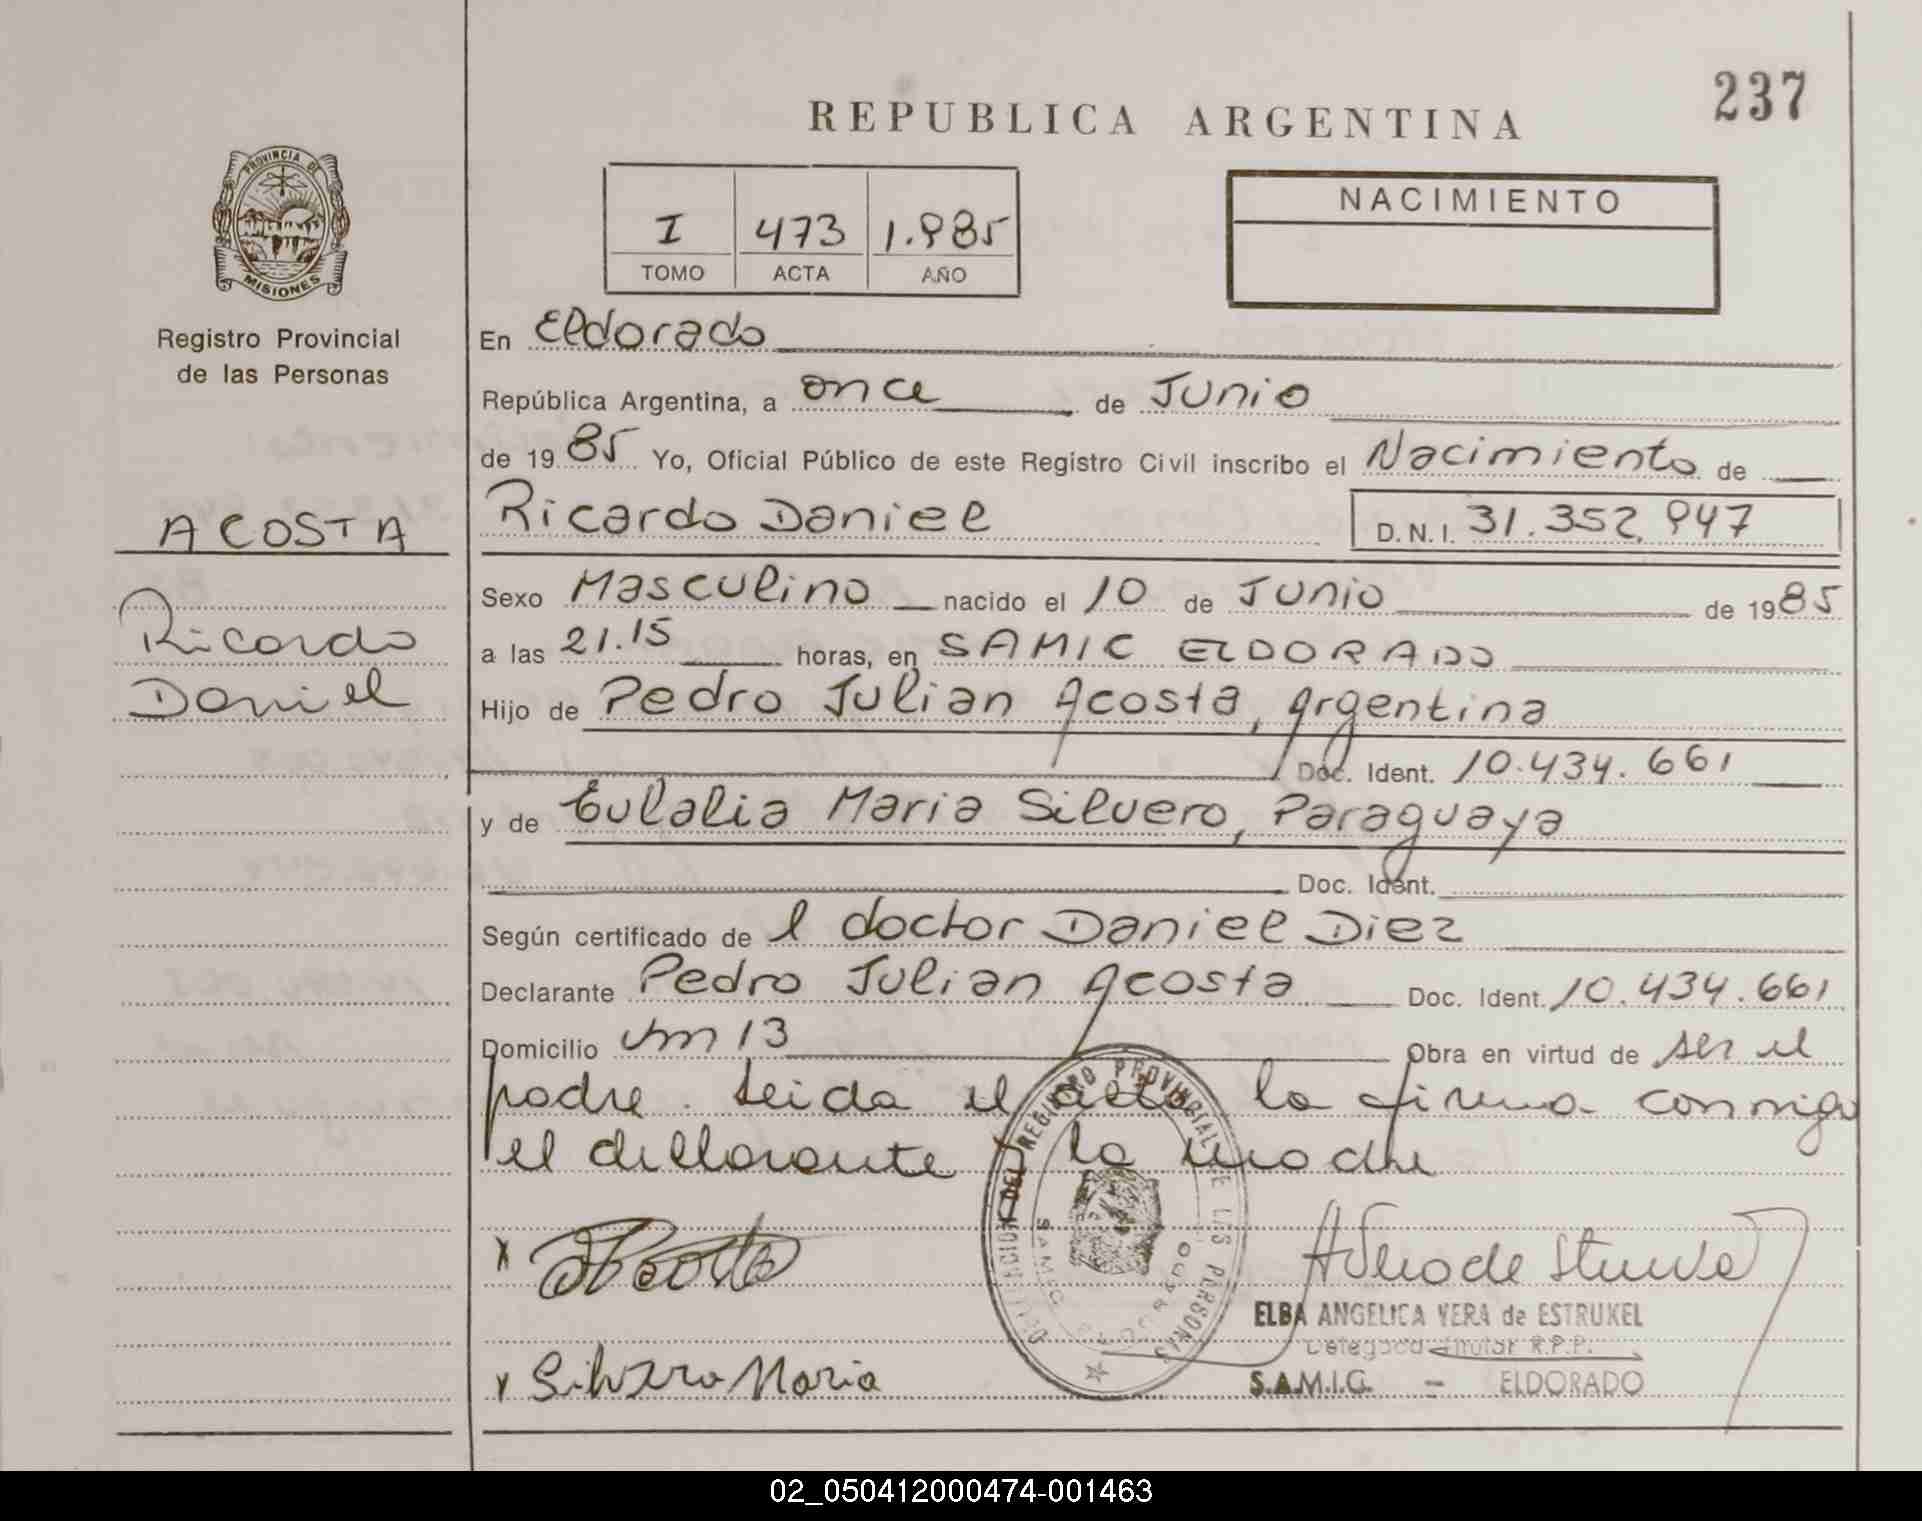 237
REPUBLICA ARGENTINA
PROVINCIA DE
MISIONES
Registro Provincial
de las Personas
I 473 1.985
TOMO ACTA AÑO
NACIMIENTO
En Eldorado
República Argentina, a once de Junio
de 1985 Yo, Oficial Público de este Registro Civil inscribo el Nacimiento de
ACOSTA
Ricardo Daniel D.N.I. 31.352.947
Ricardo
Daniel
Sexo Masculino nacido el 10 de Junio de 1985
a las 21.15 horas, en SAMIC ELDORADO
Hijo de Pedro Julian Acosta, Argentina
Doc. Ident. 10.434.661
y de Eulalia Maria Silvero, Paraguaya
Doc. Ident.
Según certificado de l doctor Daniel Diez
Declarante Pedro Julian Acosta Doc. Ident. 10.434.661
Domicilio Km 13 Obra en virtud de ser el
padre. Leida el acta la firma conmigo
el declarante y la madre
x Acosta
DELEGACION DEL REGISTRO PROVINCIAL DE LAS PERSONAS
ELBA ANGELICA VERA de ESTRUKEL
Delegada Titular R.P.P.
x Silvero Maria
S.A.M.I.C. - ELDORADO
02_050412000474-001463